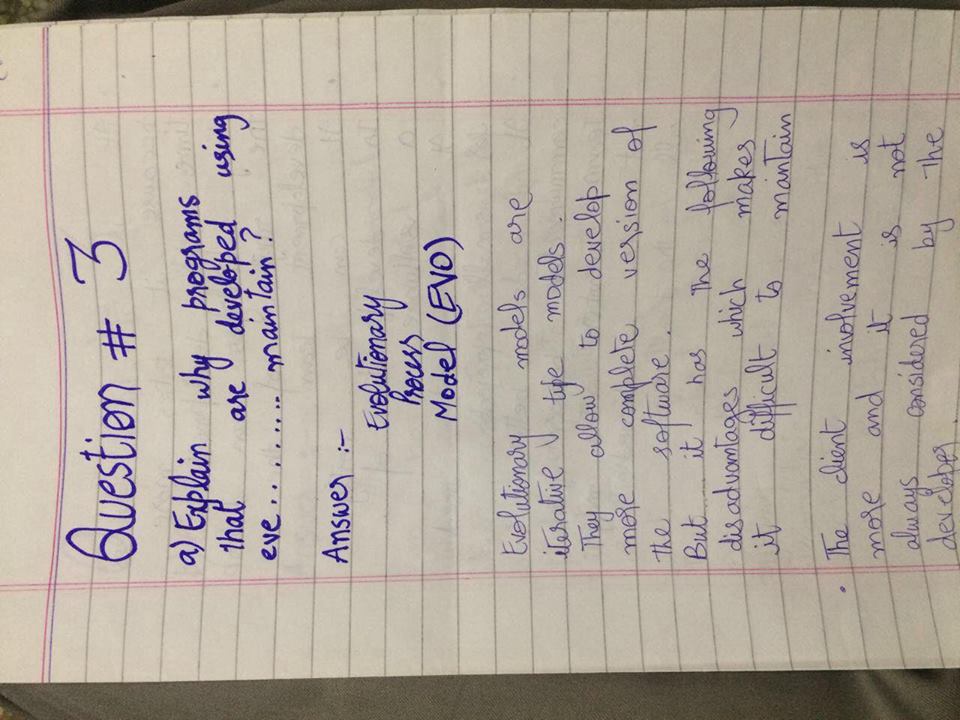 Question # 3
a) Explain why programs
that are developed using
eve.......... maintain?
Answer :-
Evolutionary
Process
Model (EVO)
Evolutionary models are
iterative type models.
They allow to develop
more complete version of
the software.
But it has the following
disadvantages which makes
it difficult to mantain
• The client involvement is
more and it is not
always considered by the
developer.